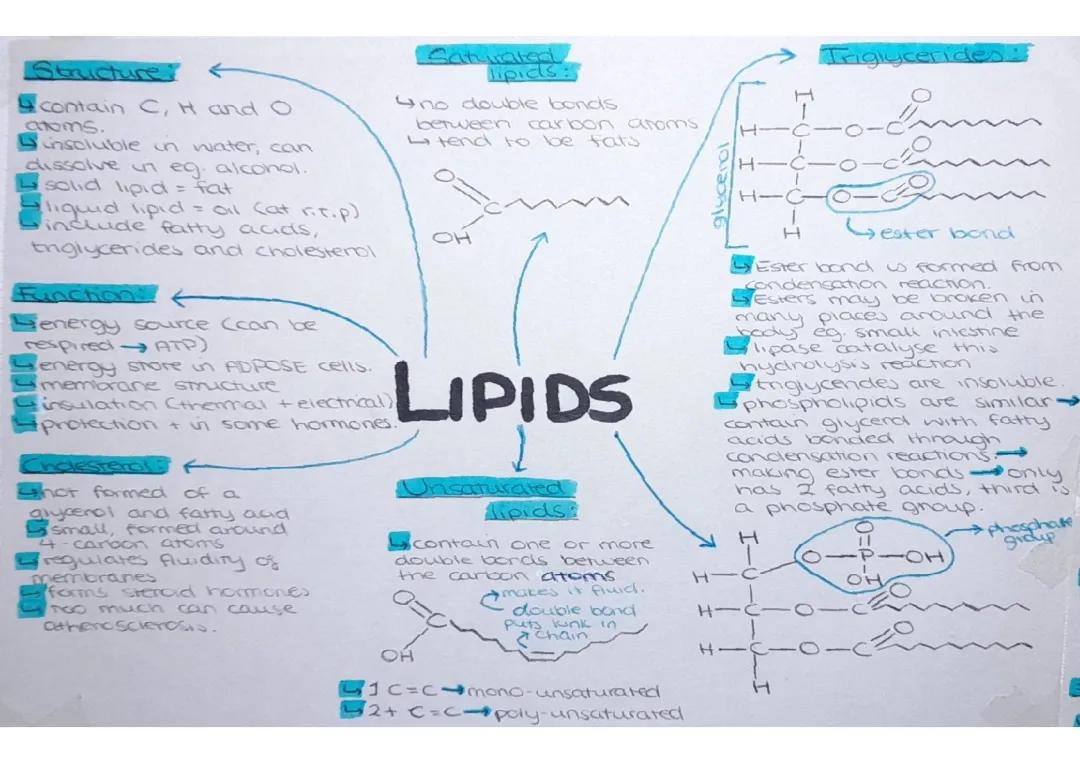 LIPIDS
Structure:
↳ contain C, H and O
atoms.
↳ insoluble in water, can
dissolve in eg. alconol.
↳ solid lipid = fat
↳ liquid lipid = oil (at r.t.p)
↳ include fatty acids,
triglycerides and cholesterol
Function:
↳ energy source (can be
respired → ATP)
↳ energy store in ADPOSE cells.
↳ membrane structure
↳ insulation (thermal + electrical)
↳ protection + in some hormones.
Cholesterol:
↳ not formed of a
glycerol and fatty acid
↳ small, formed around
4 carbon atoms
↳ regulates fluidity of
membranes
↳ forms steroid hormones
↳ too much can cause
atherosclerosis.
Saturated
lipids:
↳ no double bonds
between carbon atoms
↳ tend to be fats
O
C
OH
Unsaturated
lipids:
↳ contain one or more
double bonds between
the carbon atoms
makes it fluid.
double bond
puts kink in
chain
O
C
OH
↳ 1 C=C → mono-unsaturated
↳ 2+ C=C → poly-unsaturated
Triglycerides:
glycerol
H
H—C—O—C=O
H—C—O—C=O
H—C—O—C=O
H
↳ ester bond
↳ Ester bond is formed from
condensation reaction.
↳ Esters may be broken in
many places around the
body eg. small intestine
↳ lipase catalyse this
hydrolysis reaction
↳ triglycerides are insoluble.
↳ phospholipids are similar →
contain glycerol with fatty
acids bonded through
condensation reactions. →
making ester bonds → only
has 2 fatty acids, third is
a phosphate group.
→ phosphate
group
H
O
H—C—O—P—OH
OH
H—C—O—C=O
H—C—O—C=O
H